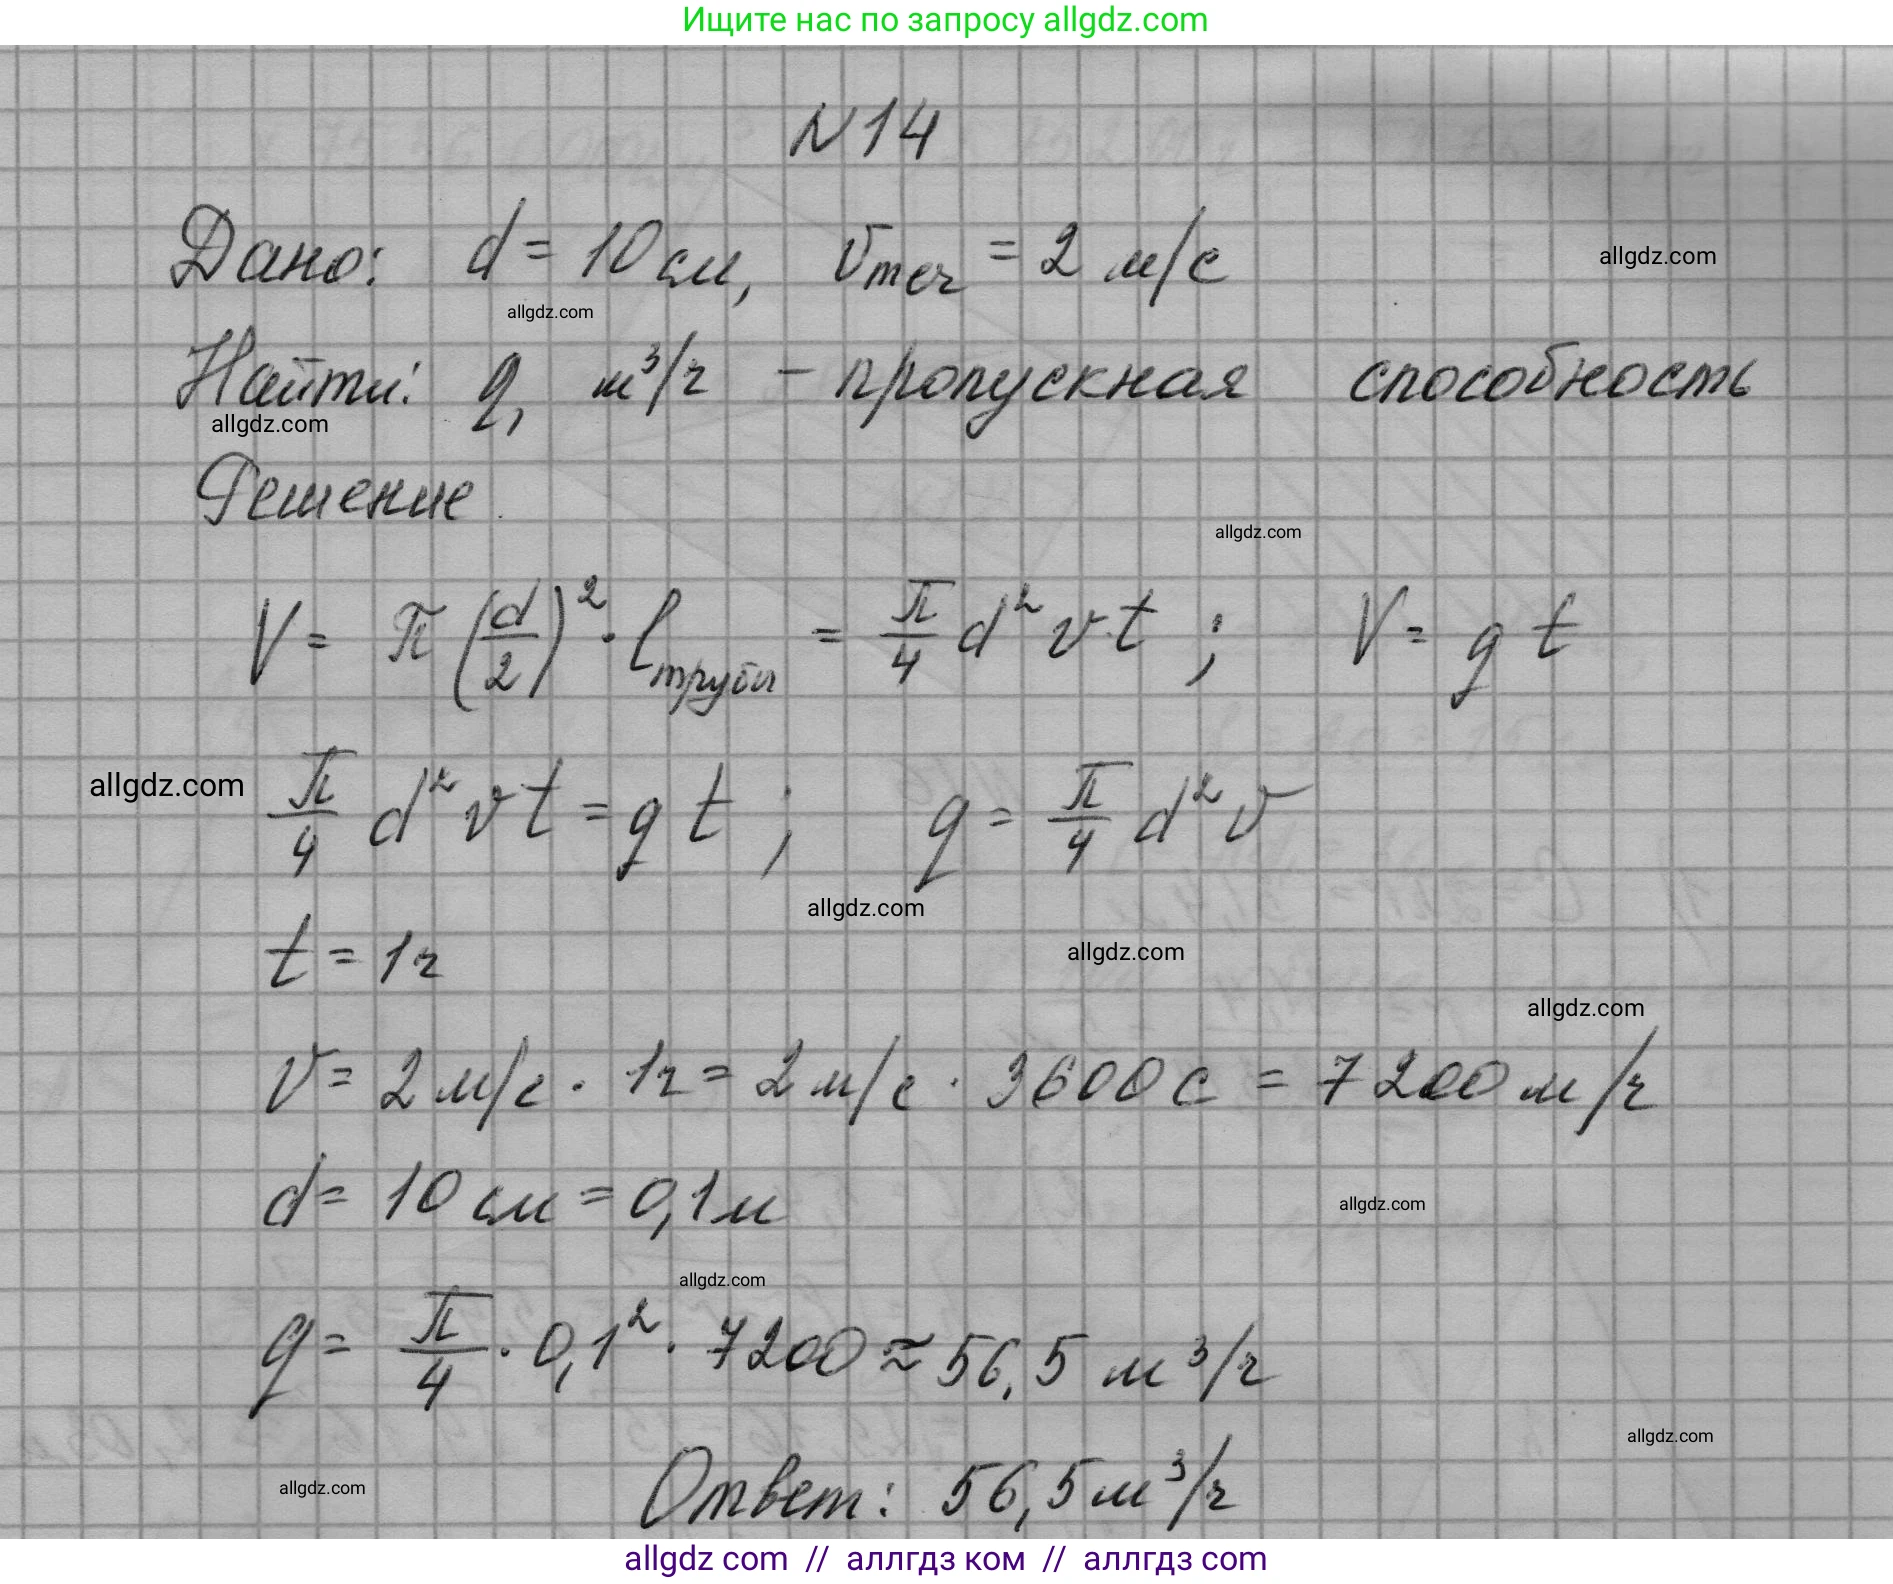 Ищите нас по запросу allgdz.com
N14
Дано: d = 10 см, vтеч = 2 м/с
allgdz.com
allgdz.com
Найти: q, м³/ч – пропускная способность
allgdz.com
Решение
allgdz.com
V = π(d/2)² · lтрубы = π/4 d² v t ; V = q t
allgdz.com
π/4 d² v t = q t ; q = π/4 d² v
allgdz.com
allgdz.com
t = 1ч
allgdz.com
v = 2 м/с · 1ч = 2 м/с · 3600 с = 7200 м/ч
d = 10 см = 0,1 м
allgdz.com
allgdz.com
q = π/4 · 0,1² · 7200 ≈ 56,5 м³/ч
allgdz.com
allgdz.com
Ответ: 56,5 м³/ч
allgdz com // аллгдз ком // аллгдз com